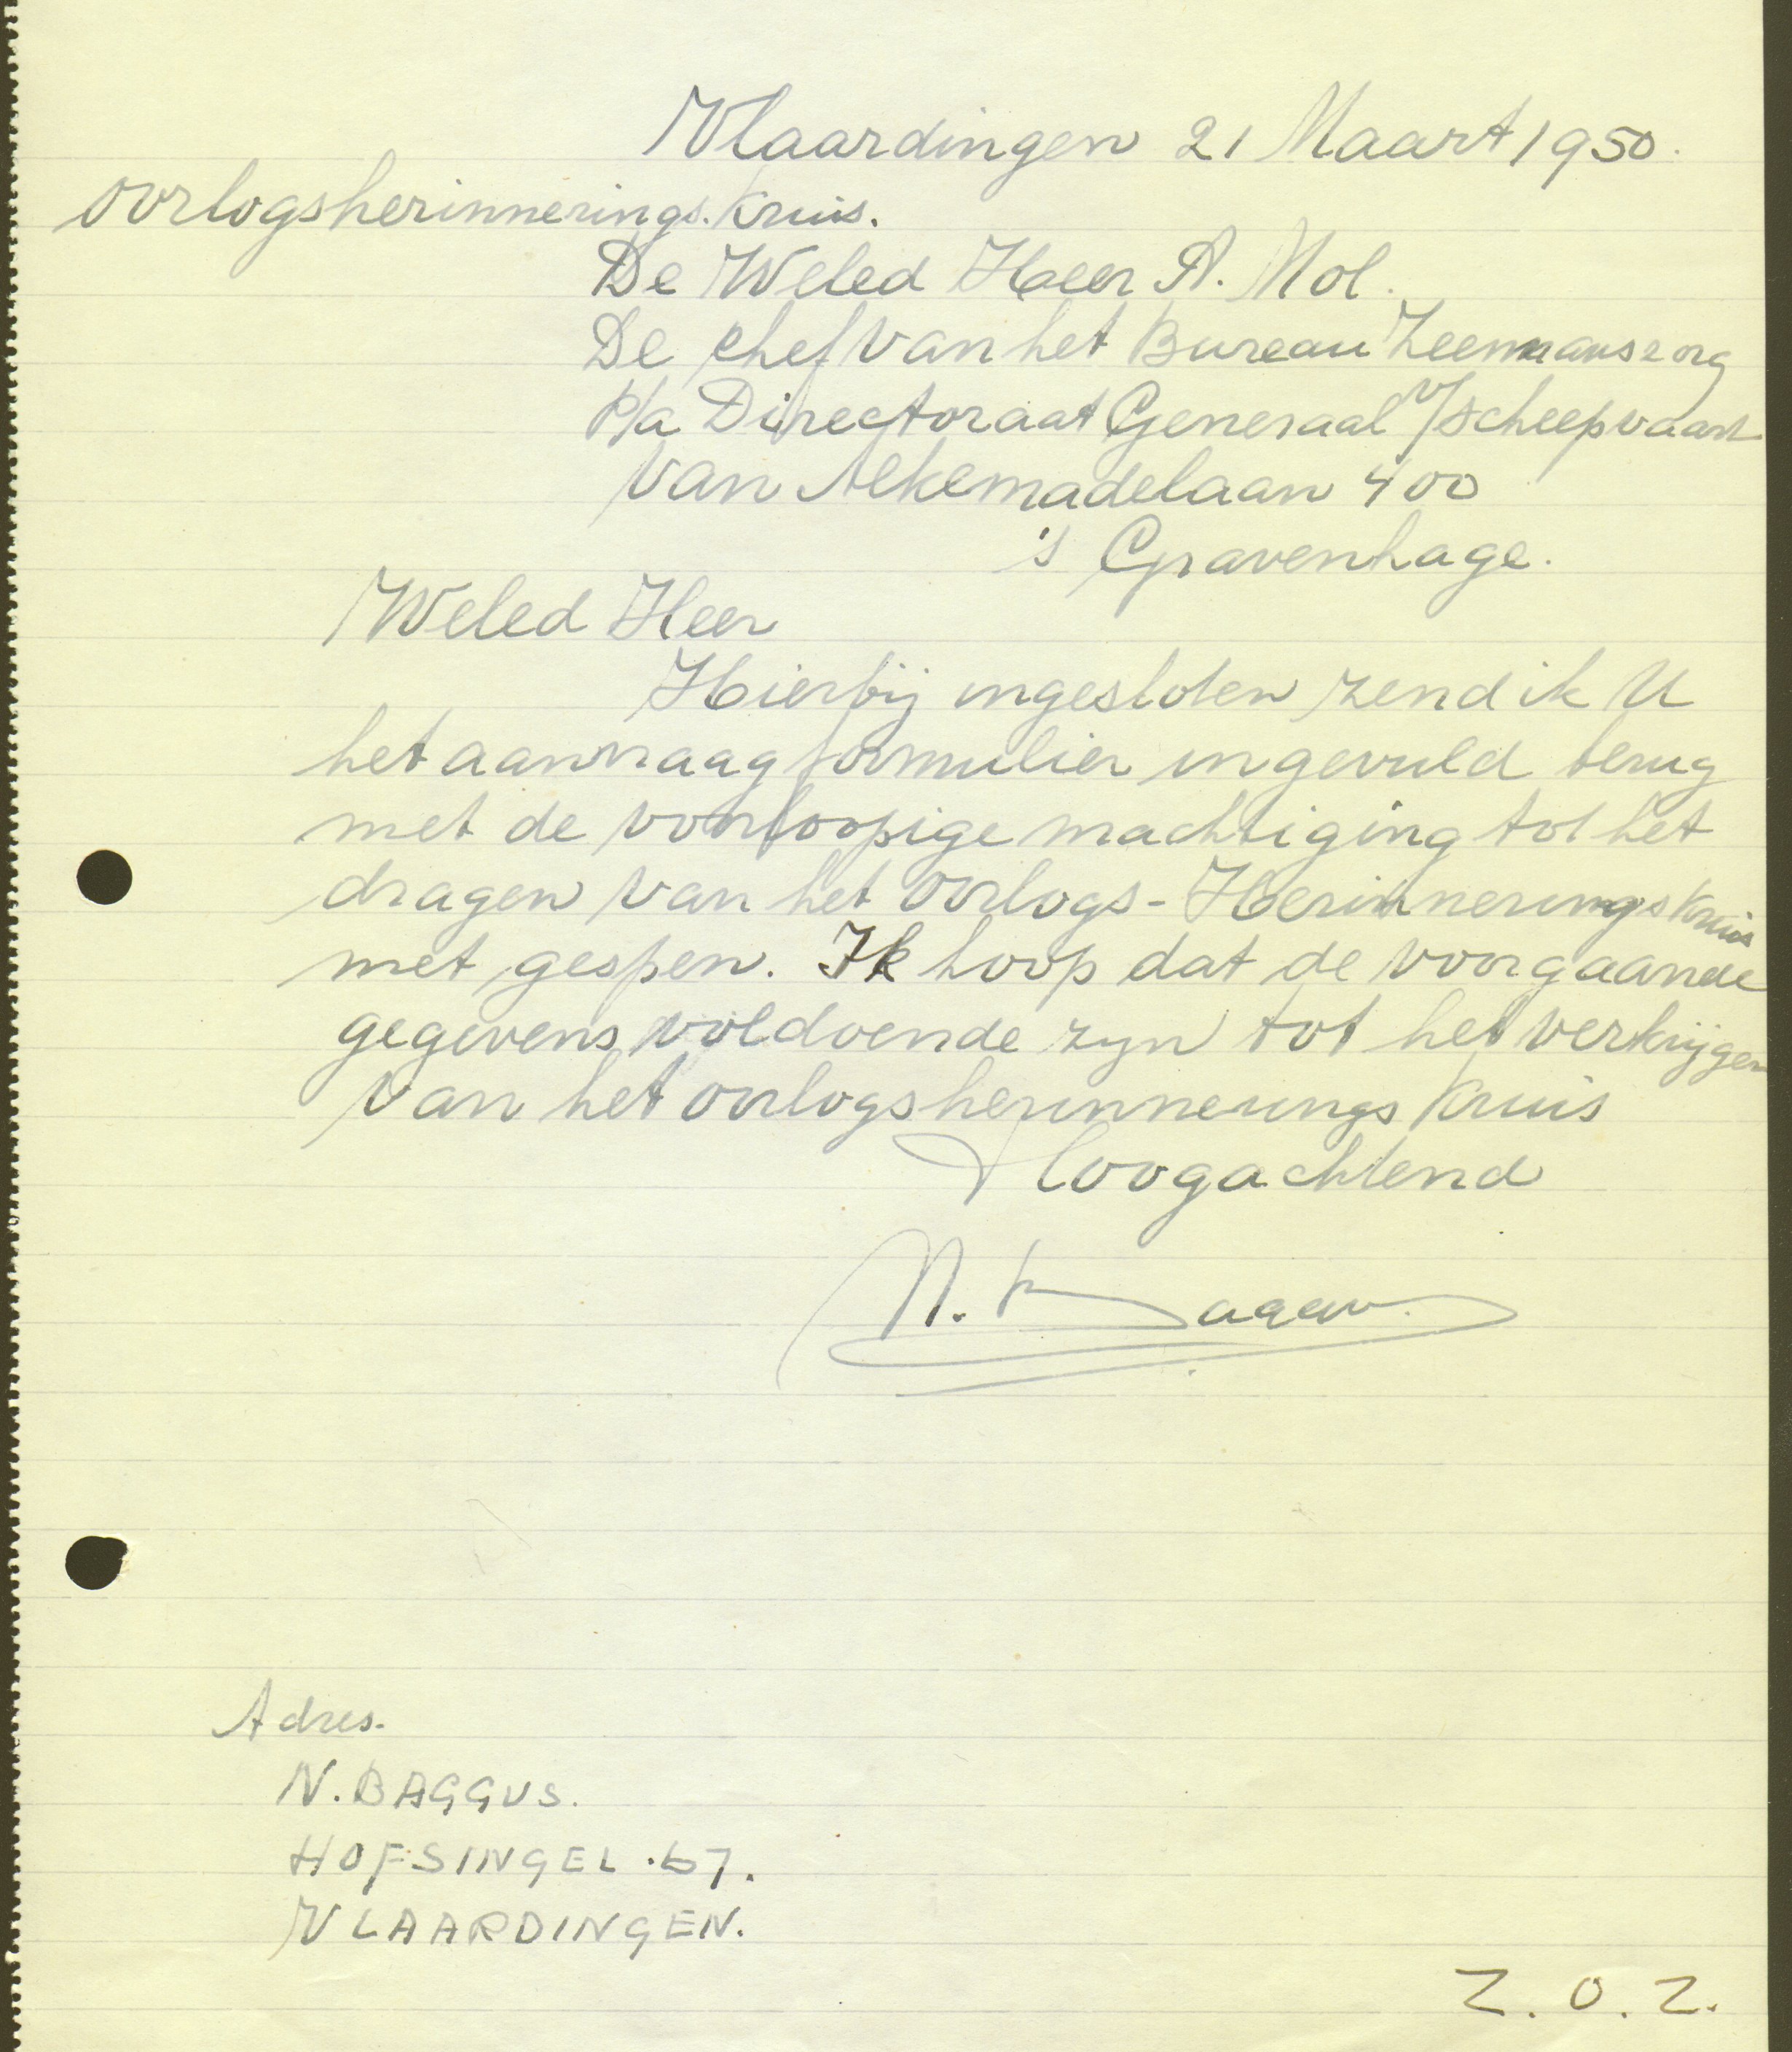 Vlaardingen 21 Maart 1950.
oorlogsherinnerings.kruis.
De Weled Heer A. Mol.
De chef van het Bureau Zeemanszorg
p/a Directoraat Generaal v/scheepvaart
Van Alkemadelaan 400
's Gravenhage.
Weled Heer
Hierbij ingesloten zend ik U
het aanvraag formulier ingevuld terug
met de voorloopige machtiging tot het
dragen van het oorlogs-Herinneringskruis
met gespen. Ik hoop dat de voorgaande
gegevens voldoende zyn tot het verkrijgen
van het oorlogsherinnerings kruis
Hoogachtend
Adres.
N. BAGGUS.
HOFSINGEL. 67.
VLAARDINGEN.
Z. O. Z.